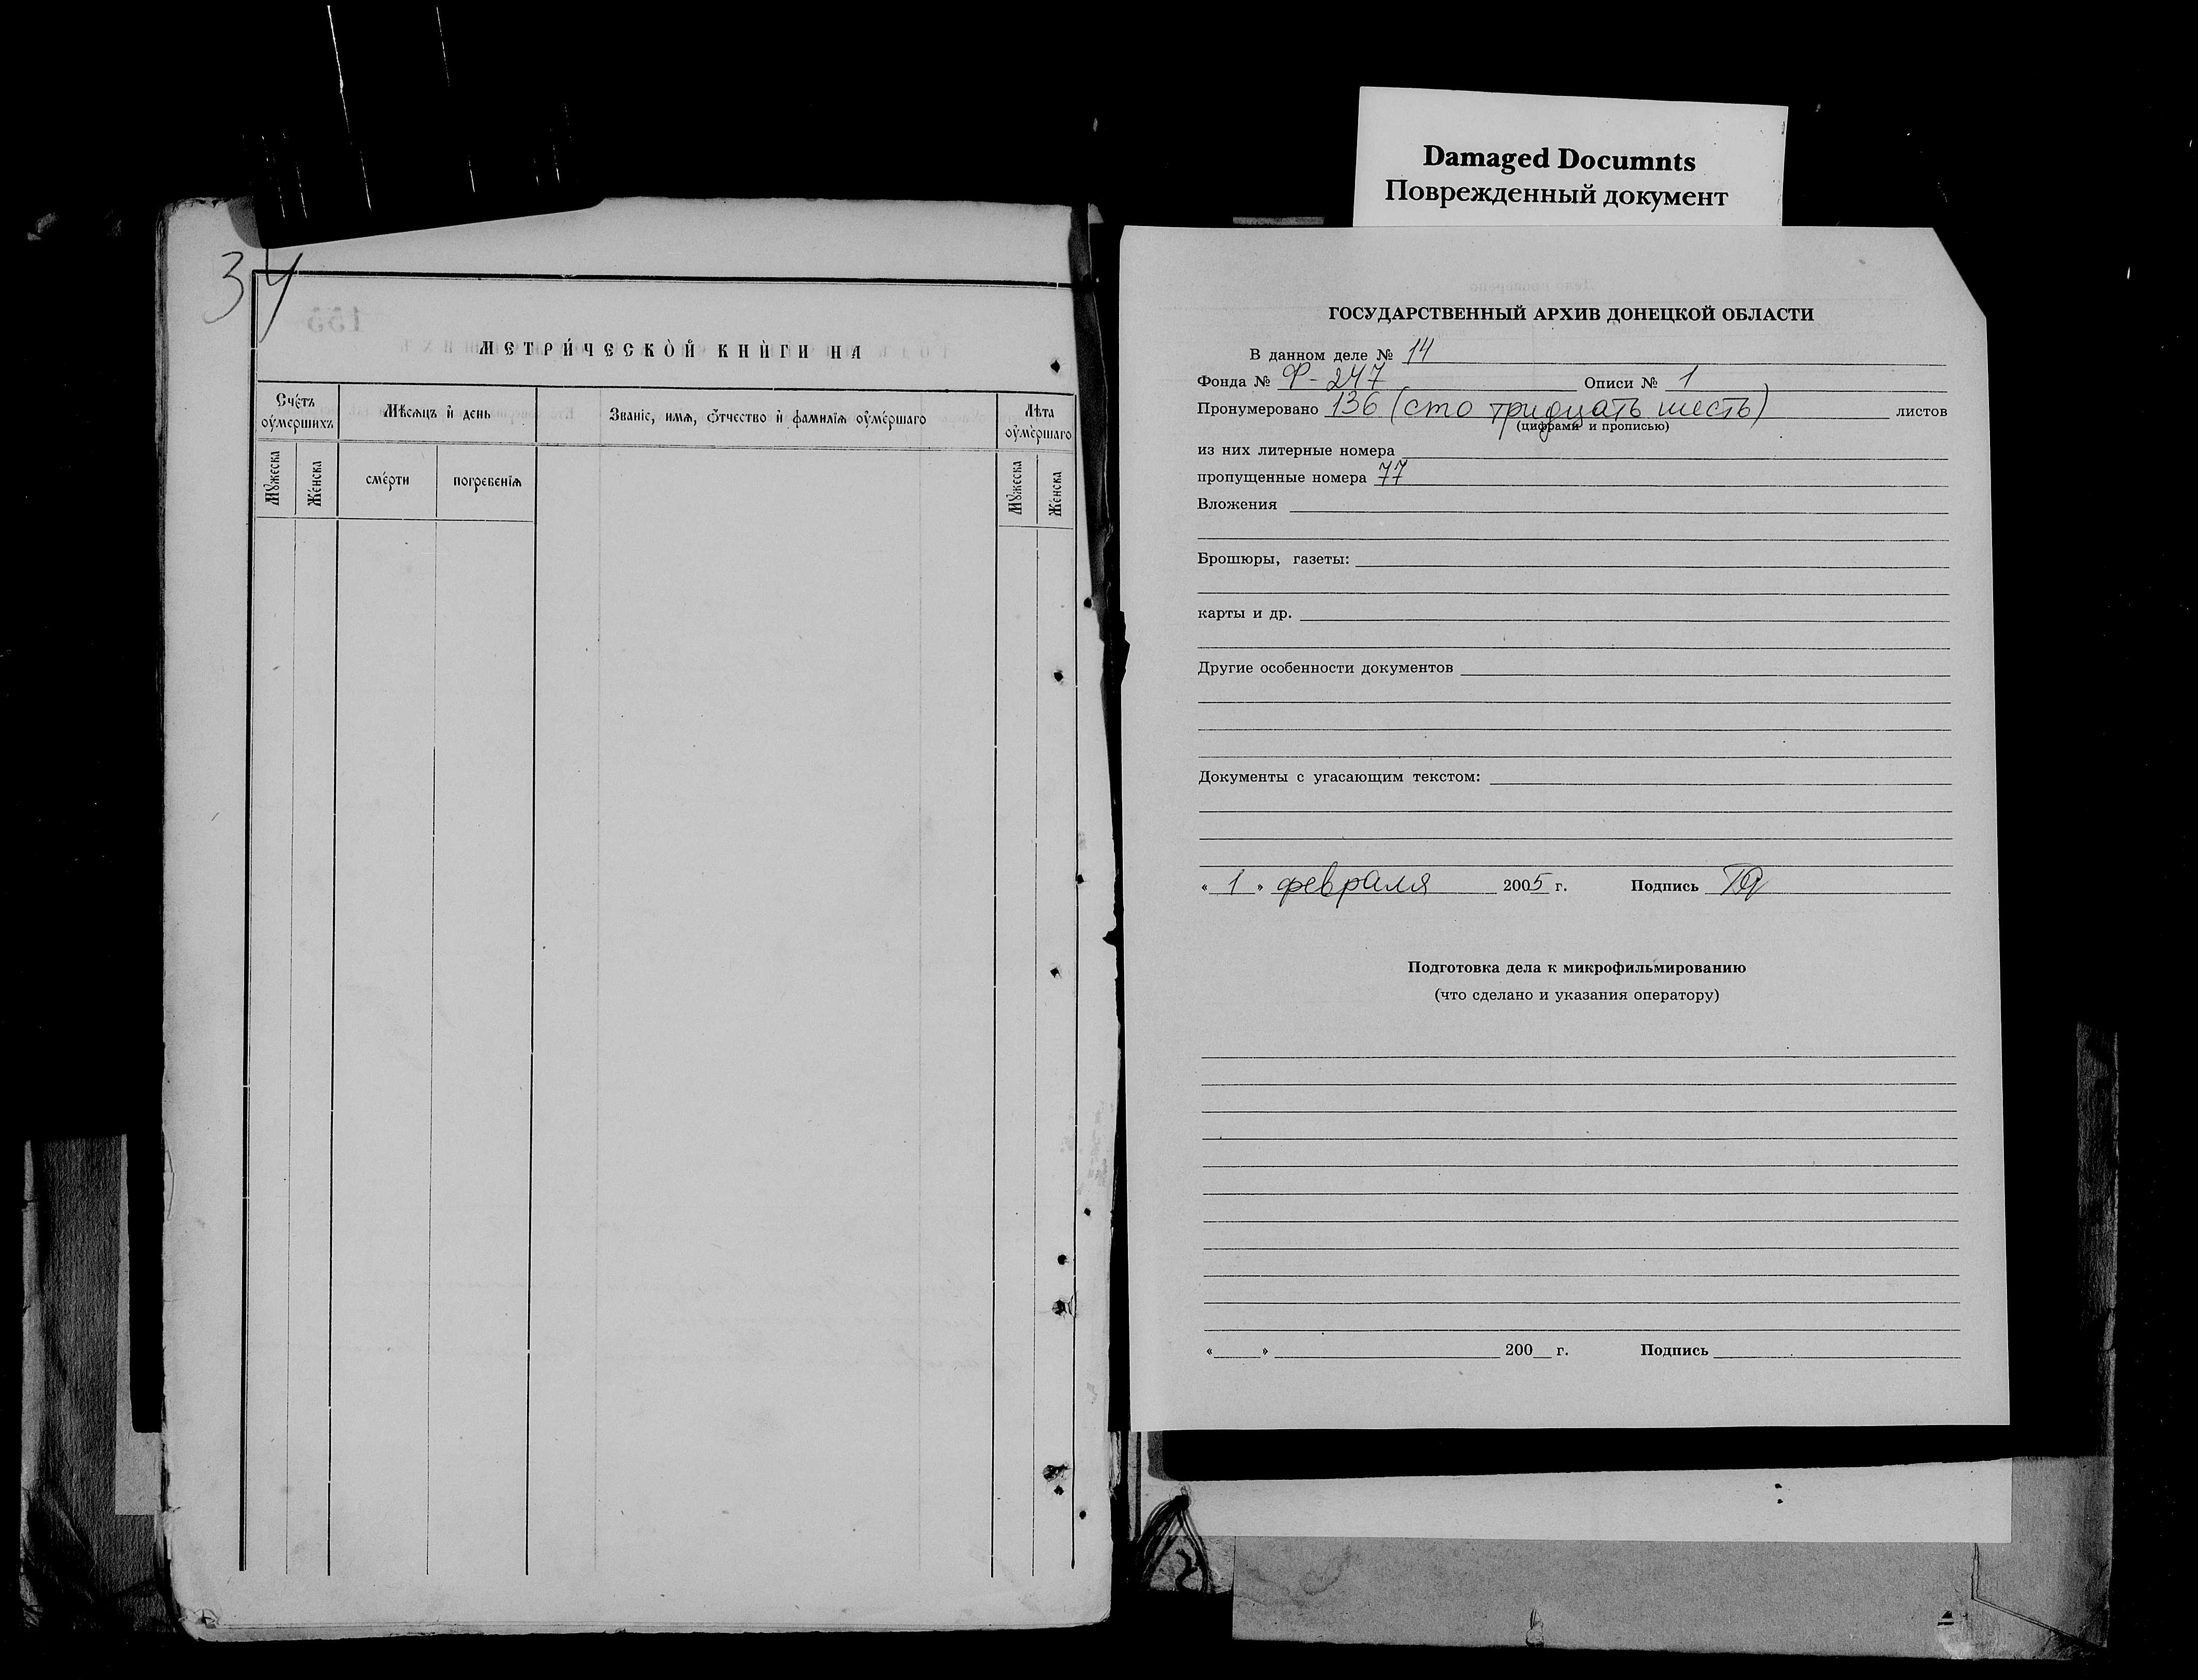 34
МЕТРИ́ЧЕСКО̀Й КНЍГИ НА
Сче́тъ
оу҆ме́ршихъ
Мѣ́сѧцъ и҆ день
Зва́нїе, и҆́мѧ, ѻ҆́тчество и҆ фами́лїѧ оу҆ме́ршаго
Лѣ́та
оу҆ме́ршаго
Мꙋ́жеска
Же́нска
сме́рти
погребе́нїѧ
Мꙋ́жеска
Же́нска
Damaged Documnts
Поврежденный документ
ГОСУДАРСТВЕННЫЙ АРХИВ ДОНЕЦКОЙ ОБЛАСТИ
В данном деле № 14
Фонда № Ф-247 Описи № 1
Пронумеровано 136 (сто тридцать шесть) листов
(цифрами и прописью)
из них литерные номера
пропущенные номера 77
Вложения
Брошюры, газеты:
карты и др.
Другие особенности документов
Документы с угасающим текстом:
« 1 » февраля 2005 г. Подпись
Подготовка дела к микрофильмированию
(что сделано и указания оператору)
« » 200 г. Подпись